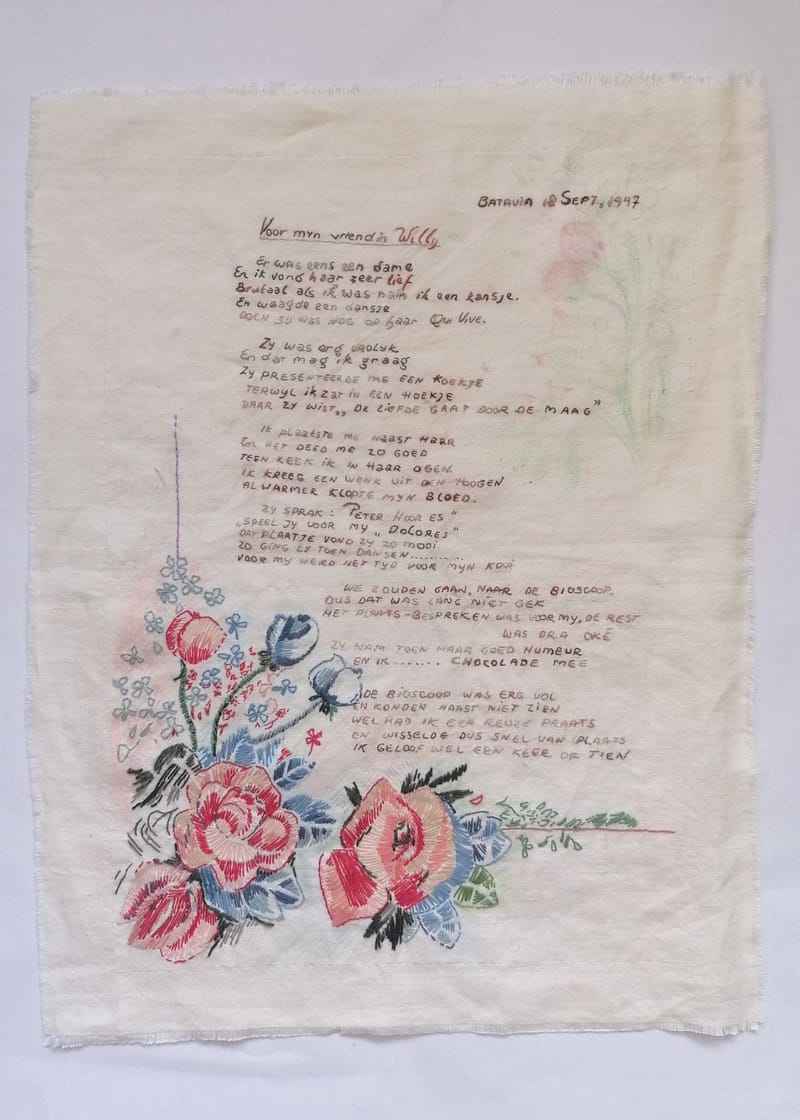 BATAVIA 18 SEPT, 1947
Voor myn vriendin Willy
Er was eens een dame
En ik vond haar zeer lief
Brutaal als ik was nam ik een kansje.
En waagde een dansje
DOCH ZIJ WAS NOG OP haar QUI VIVE.
Zy was erg vrolyk
En dat mag ik graag
Zy PRESENTEERDE ME EEN KOEKJE
TERWYL ik zat in EEN HOEKJE
DAAR ZY WIST,, DE LIEFDE GAAT DOOR DE MAAG"
Ik plaatste me naast haar
En HET DEED ME ZO GOED
TEEN KEEK ik IN HAAR OGEN.
IK KREEG EEN WENK UIT DEN HOOGEN
AL WARMER KLOPTE MYN BLOED.
ZY SPRAK: "PETER HOOR ES"
„SPEEL JY VOOR MY „DOLORES"
DAT PLAATJE VOND ZY ZO MOOI
ZO GING ZY TOEN DANSEN...........
VOOR MY WERD HET TYD VOOR MYN KOOI
WE ZOUDEN GAAN, NAAR DE BIOSCOOP.
DUS DAT WAS LANG NIET GEK
HET PLAATS-BESPREKEN WAS VOOR MY, DE REST
WAS DRA OKÉ
ZY NAM TOEN HAAR GOED HUMEUR
EN IK....... CHOCOLADE MEE
DE BIOSCOOP WAS ERG VOL
EN KONDEN HAAST NIET ZIEN
WEL HAD IK EEN REUZE PRAATS
EN WISSELDE DUS SNEL VAN PLAATS
IK GELOOF WEL EEN KEER OF TIEN